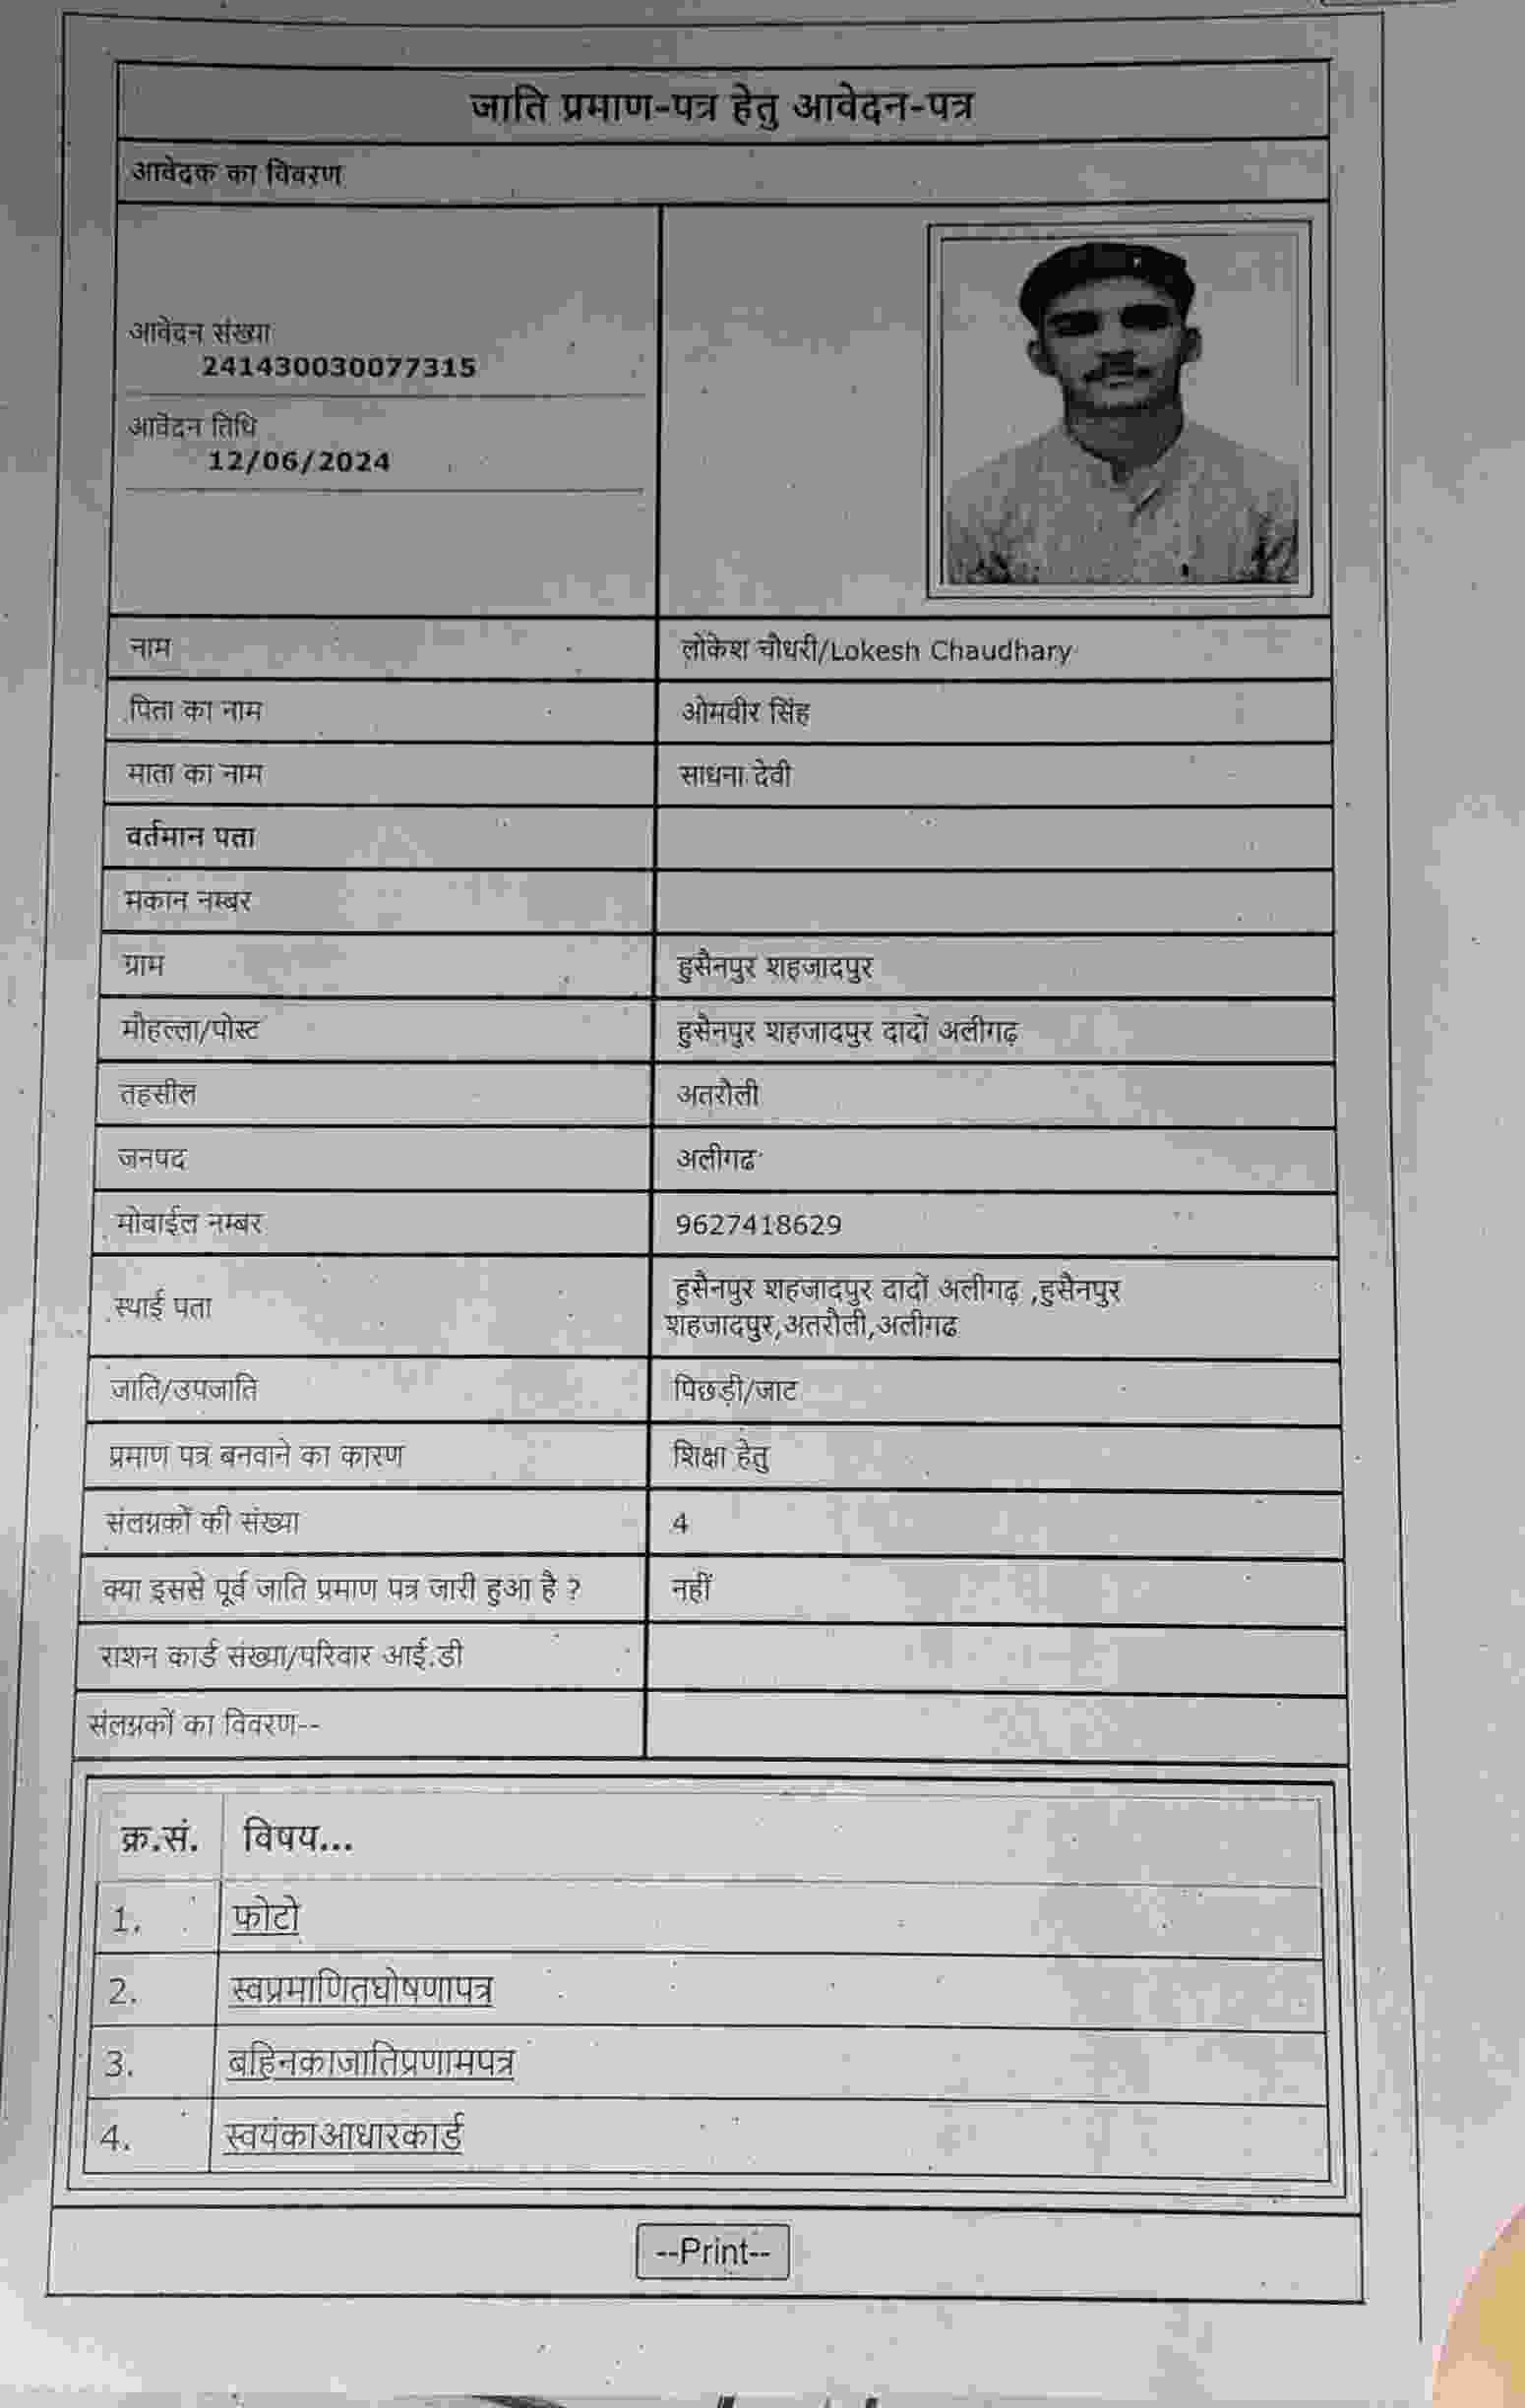 जाति प्रमाण-पत्र हेतु आवेदन-पत्र
आवेदक का विवरण
आवेदन संख्या
241430030077315
आवेदन तिथि
12/06/2024
नाम लोकेश चौधरी/Lokesh Chaudhary
पिता का नाम ओमवीर सिंह
माता का नाम साधना देवी
वर्तमान पता
मकान नम्बर
ग्राम हुसैनपुर शहजादपुर
मोहल्ला/पोस्ट हुसैनपुर शहजादपुर दादों अलीगढ़
तहसील अतरौली
जनपद अलीगढ
मोबाईल नम्बर 9627418629
स्थाई पता हुसैनपुर शहजादपुर दादों अलीगढ़ ,हुसैनपुर
शहजादपुर,अतरौली,अलीगढ
जाति/उपजाति पिछड़ी/जाट
प्रमाण पत्र बनवाने का कारण शिक्षा हेतु
संलग्नकों की संख्या 4
क्या इससे पूर्व जाति प्रमाण पत्र जारी हुआ है ? नहीं
राशन कार्ड संख्या/परिवार आई.डी
संलग्नकों का विवरण--
क्र.सं. विषय...
1. फोटो
2. स्वप्रमाणितघोषणापत्र
3. बहिनकाजातिप्रणामपत्र
4. स्वयंकाआधारकार्ड
--Print--